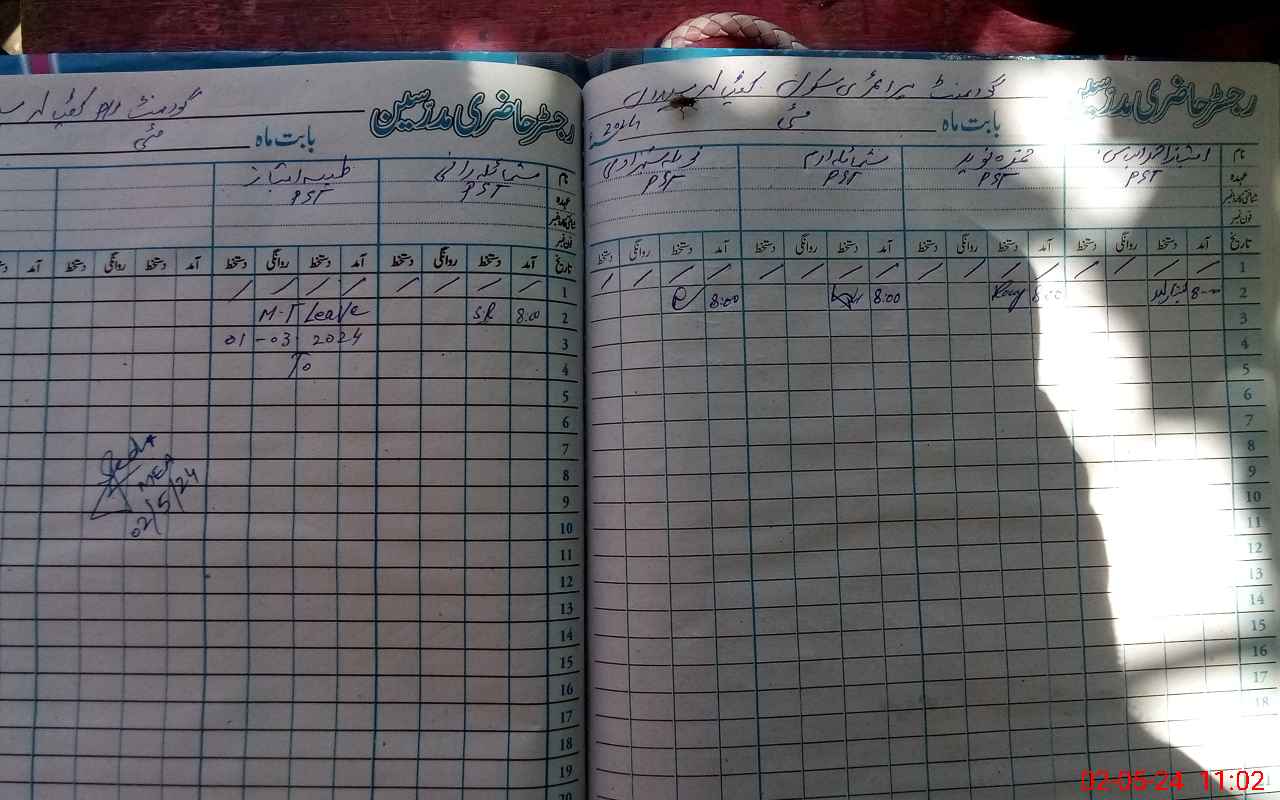 رجسٹر حاضری مدرسین
گورنمنٹ پرائمری سکول
بابت ماہ مئی 2024
نام
عہدہ PST PST PST PST
شناختی کارڈ نمبر
فون نمبر
تاریخ آمد دستخط روانگی دستخط آمد دستخط روانگی دستخط آمد دستخط روانگی دستخط آمد دستخط روانگی دستخط
1
2 8:00 8:00 8:00 8:00
3
4
5
6
7
8
9
10
11
12
13
14
15
16
17
18
رجسٹر حاضری مدرسین
گورنمنٹ
بابت ماہ مئی
نام شمائلہ رانی طیبہ امتیاز
عہدہ PST PST
شناختی کارڈ نمبر
فون نمبر
تاریخ آمد دستخط روانگی دستخط آمد دستخط روانگی دستخط آمد دستخط روانگی دستخط آمد
1
2 8:00 SR M.T Leave
3 01-03-2024
4 To
5
6
7
8
9
10
11
12
13
14
15
16
17
18
19
20
MEA
02/5/24
02-05-24 11:02